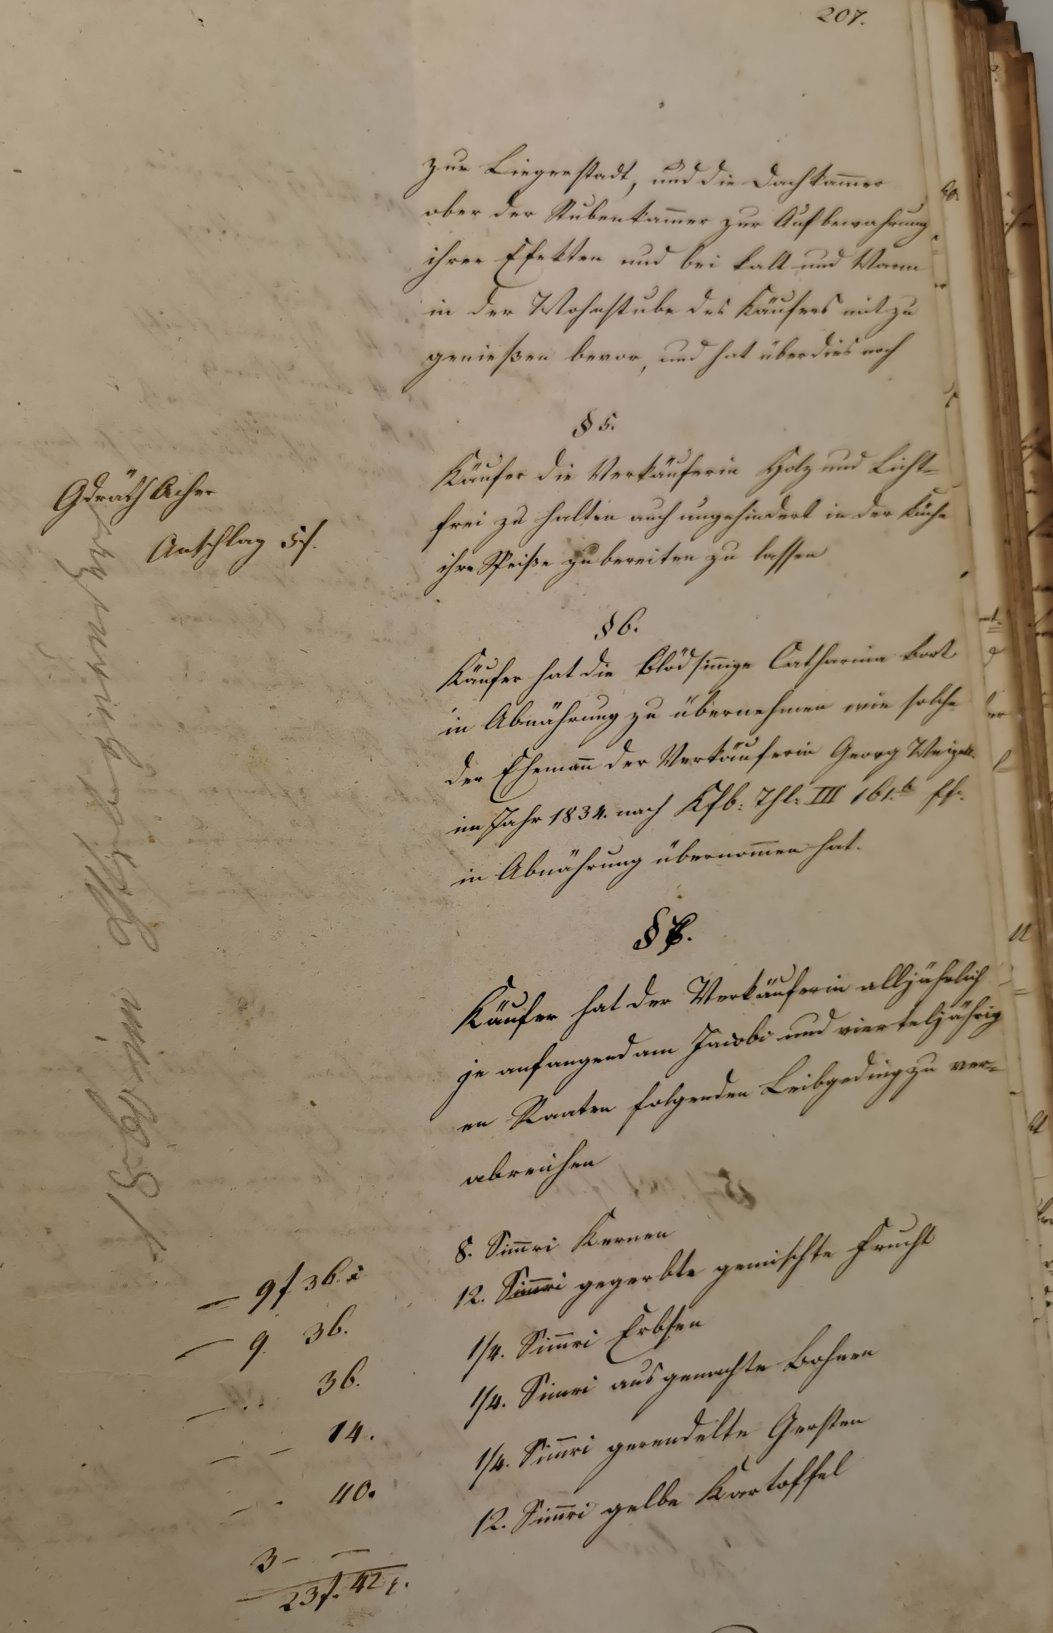 207.
zur Liegerstadt, und die Dachkammer
ober der Stubenkammer zur Aufbewahrung
ihrer Efekten und bei kalt und Warm
in der Wohnstube des Käufers mit zu
genießen bevor, und hat überdies noch
§ 5.
Käufer die Verkäuferin Holz und Licht-
frei zu halten auch ungehindert in der Küche
ihre Speiße zubereiten zu lassen
Anschlag 5 f.
§ 6.
Käufer hat die blödsinnige Catharina Bort
in Abnährung zu übernehmen wie solche
der Ehemann der Verkäuferin Georg Weigel
im Jahr 1834. nach Kfb: Thl: III 161.b ff.
in Abnährung übernommen hat.
§ 7.
Käufer hat der Verkäuferin alljährlich
je anfangend am Jacobi und vierteljährig
en Raaten folgenden Leibgeding zu ver-
abreichen
8. Simri Kernen
12. Simri gegerbte gemischte Frucht
1/4. Simri Erbsen
1/4. Simri ausgemachte Bohnen
1/4. Simri gerendelte Gersten
12. Simri gelbe Kartoffel
— 9 f 36. x
— 9. 36.
— 36.
— 14.
— 40.
3 — —
23 f. 42 x.